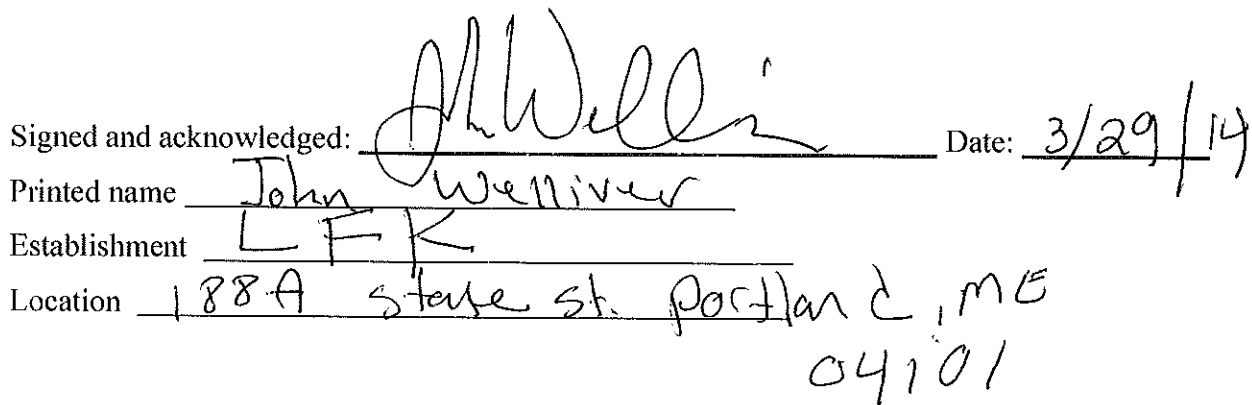 Signed and acknowledged: Date: 3/29/14
Printed name John Welliver
Establishment LFK
Location 188A State St. Portland, ME
04101